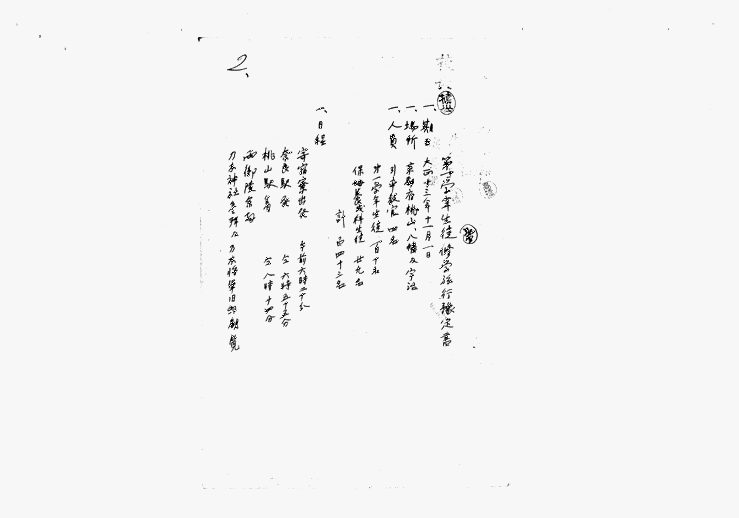 2、
第一学年生徒修学旅行予定書
一、期日 大正十三年十一月一日
一、場所 京都府桃山、八幡及宇治
一、人員 引率教官 四名
第一学年生徒 百十名
保姆養成科生徒 廿九名
計 百四十三名
一、日程
寄宿寮出発 午前六時二十分
奈良駅発 仝 六時五十五分
桃山駅着 仝 八時十四分
両御陵参拝
乃木神社参拝及乃木将軍旧邸観覧